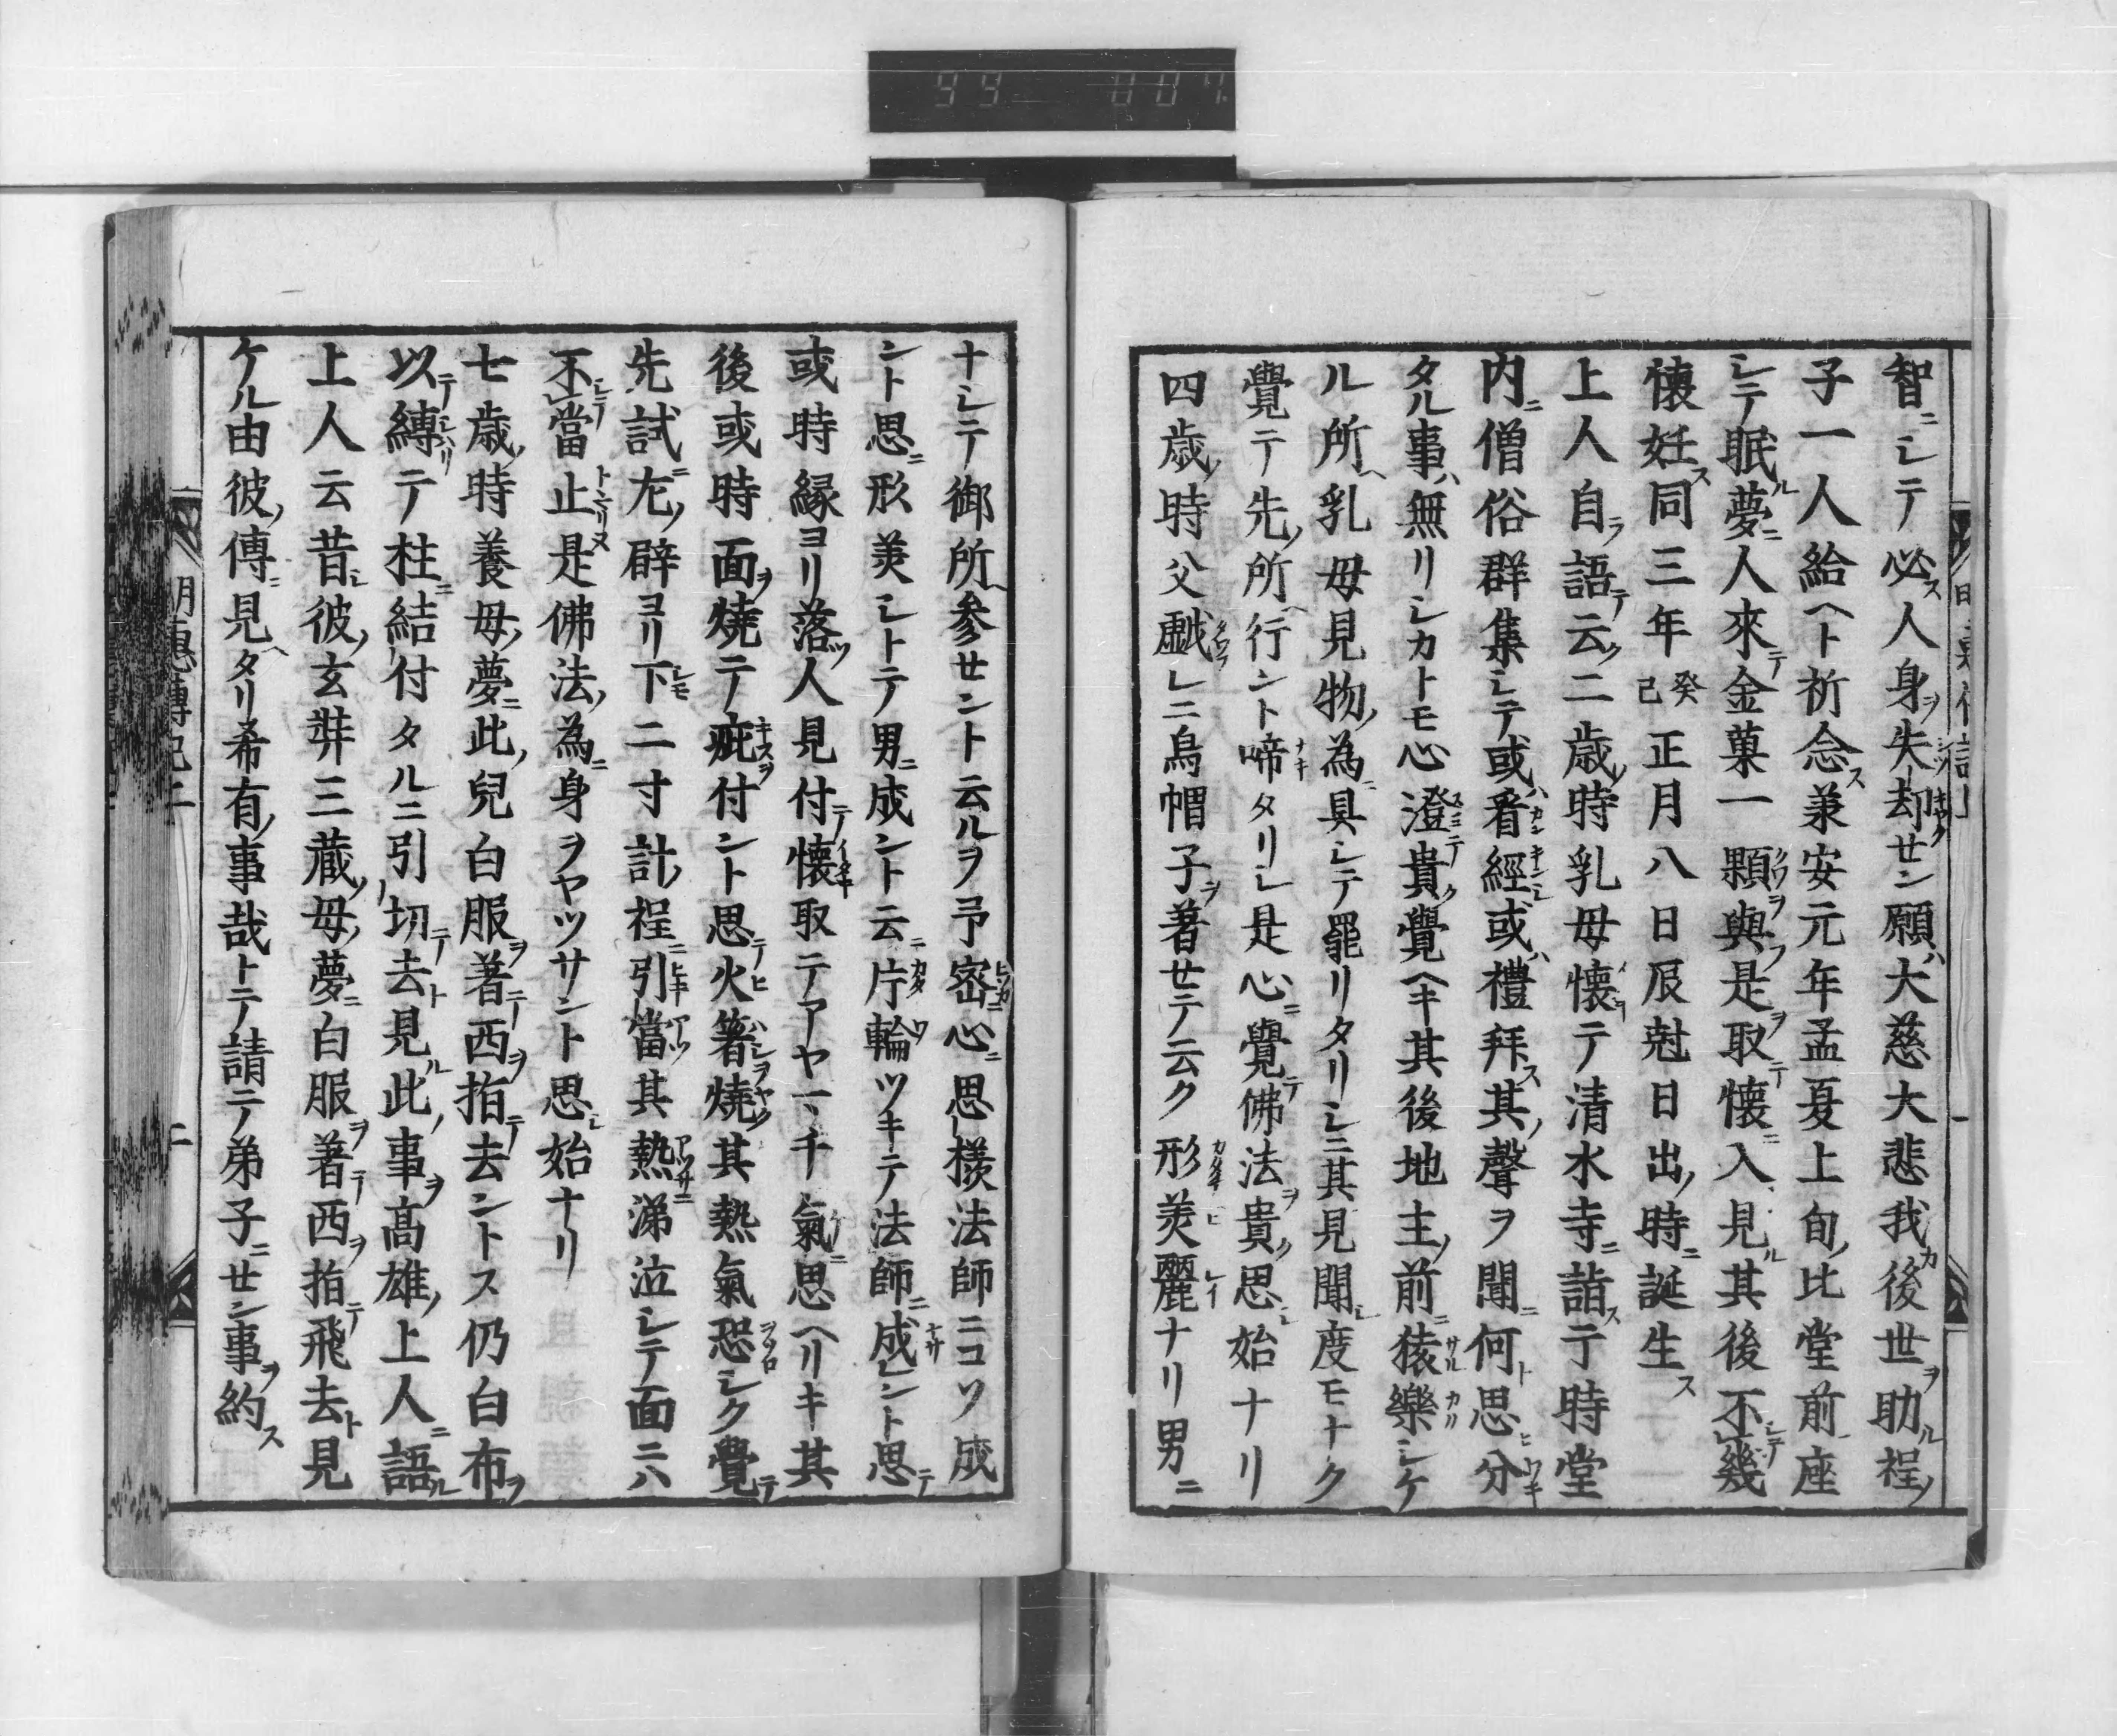 智ニシテ必ス人身ヲ失却セン願ハ大慈大悲我カ後世ヲ助ル程ノ
子一人給ヘト祈念ス兼安元年孟夏上旬ノ比堂前ノ座
シテ眠ル夢ニ人來テ金菓一顆ヲ與フ是ヲ取テ懐ニ入ト見ル其後不シテ幾
懐妊ス同三年癸巳正月八日辰尅日出ノ時ニ誕生ス
上人自ラ語テ云ク二歳ノ時乳母懐テ清水寺ニ詣ス于時堂
内ニ僧俗群集シテ或ハ看經シ或ハ禮拜ス其ノ聲ヲ聞ニ何ト思ヒ分
タル事ハ無リシカトモ心澄テ貴ク覺ヘキ其後地主ノ前ニ猿樂シケ
ル所ヘ乳母見物ノ為ニ具シテ罷リタリシニ其見聞シ度モナク
覺テ先ノ所ヘ行ント啼タリシ是心ニ覺テ佛法ヲ貴ク思シ始ナリ
四歳ノ時父戯レニ烏帽子ヲ著セテ云ク形美麗ナリ男ニ
ナシテ御所ヘ参セント云ルヲ予密ニ心ニ思樣法師ニコソ成
ント思ニ形美シトテ男ニ成ント云ニ片輪ツキテ法師ニ成ント思テ
或時縁ヨリ落ツ人見付テ懐取テアヤマチノ氣ニ思ヘリキ其
後或時面ヲ燒テ疵ヲ付ント思テ火箸ヲ燒ク其熱氣恐シク覺テ
先試ニ左ノ臂ヨリ下二寸計ノ程ニ引當ツ其熱ニ涕泣シテ面ニハ
不シテ當止ヌ是佛法ノ為ニ身ヲヤツサント思シ始ナリ
七歳ノ時養母ノ夢ニ此ノ兒白服ヲ著テ西ヲ指テ去ントス仍白布ヲ
以テ縛テ柱ニ結付タルニ引切テ去ト見ル此ノ事ヲ高雄ノ上人ニ語ル
上人云昔シ彼ノ玄奘三藏ノ母ノ夢ニ白服ヲ著テ西ヲ指テ飛去ト見
ケル由彼ノ傳ニ見ヘタリ希有ノ事哉トテ請テ弟子ニセン事ヲ約ス
明惠傳記上
二